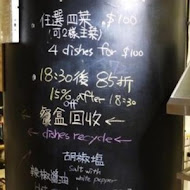 任選四菜 $100
(可2條主菜)
4 dishes for $100
18:30後 85折
15% After 18:30
Off
餐盒回收←
←dishes recycle←
胡椒塩
Salt with
white pepper
辣椒醬油